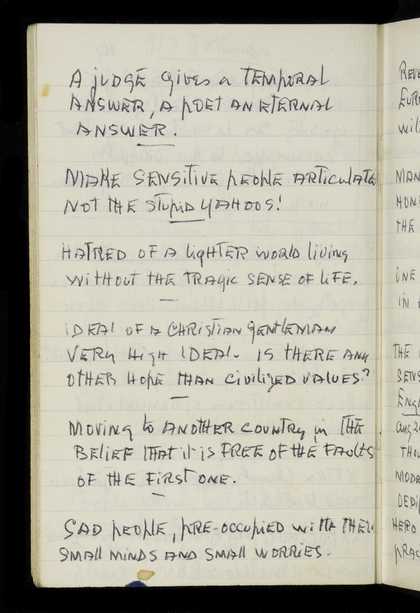 A JUDGE gives a TEMPORAL
ANSWER, A POET AN ETERNAL
ANSWER.
MAKE SENSITIVE PEOPLE ARTICULATE
NOT THE STUPID YAHOOS!
HATRED OF A LIGHTER WORLD LIVING
WITHOUT THE TRAGIC SENSE OF LIFE.
IDEAL OF A CHRISTIAN GENTLEMAN
VERY HIGH IDEAL. IS THERE ANY
OTHER HOPE THAN CIVILIZED VALUES?
MOVING to ANOTHER COUNTRY in THE
BELIEF THAT it is FREE OF THE FAULTS
OF THE FIRST ONE.
SAD PEOPLE, PRE-OCCUPIED WITH THEIR
SMALL MINDS AND SMALL WORRIES.
EURO
WILL
MAN
THE
ONE
IN
THE
MODE
HERO